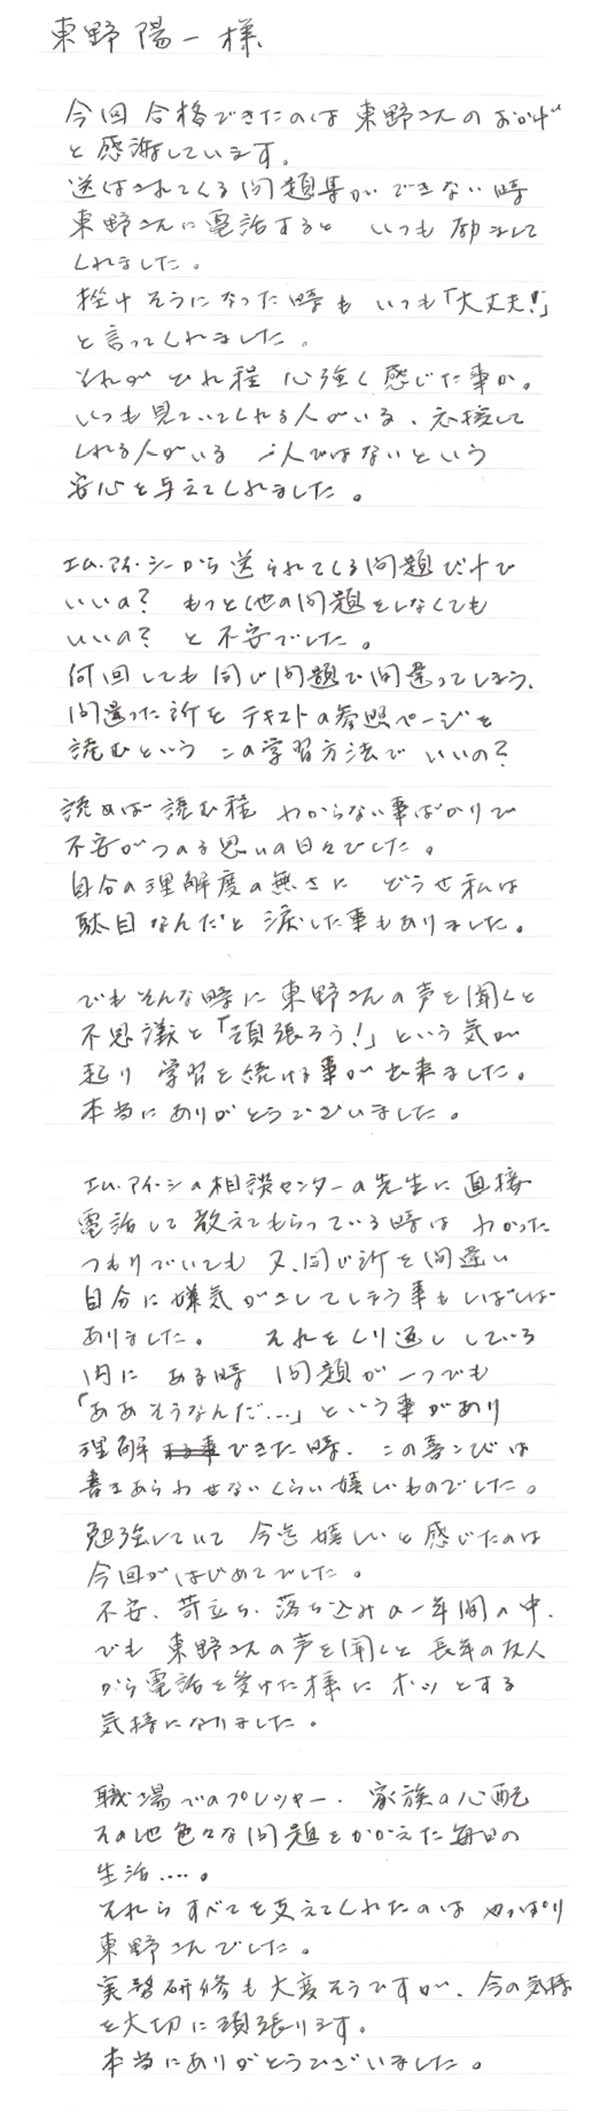 東野陽一様
今回 合格できたのは 東野さんの おかげ
と 感謝しています。
送付されてくる問題集が できない時
東野さんに電話すると いつも 励まして
くれました。
挫けそうになった時も いつも「大丈夫!」
と言ってくれました。
それが どれ程 心強く 感じた事か。
いつも見ていてくれる人がいる、応援して
くれる人がいる 一人ではないという
安心を与えてくれました。
エム・アイ・シーから送られてくる問題だけで
いいの? もっと他の問題をしなくても
いいの? と 不安でした。
何回しても 同じ問題で間違ってしまう、
間違った所を テキストの参照ページを
読むという この学習方法で いいの?
読めば 読む程 わからない事ばかりで
不安がつのる思いの日々でした。
自分の理解度の無さに どうせ私は
駄目なんだと 涙した事もありました。
でも そんな時に 東野さんの声を聞くと
不思議と「頑張ろう!」という気が
起り 学習を続ける事が出来ました。
本当にありがとうございました。
エム・アイ・シの相談センターの先生に直接
電話して教えてもらっている時は わかった
つもりでいても 又、同じ所を間違い
自分に嫌気がさしてしまう事もしばしば
ありました。 それをくり返し している
内に ある時 問題が 一つでも
「ああそうなんだ…」という事があり
理解 できた時、この喜こびは
書きあらわせないくらい嬉しいものでした。
勉強していて 今迄 嬉しいと感じたのは
今回がはじめてでした。
不安、苛立ち、落ち込みの一年間の中、
でも 東野さんの声を聞くと 長年の友人
から電話を受けた様に ホッとする
気持になりました。
職場でのプレッシャー、家族の心配
その他 色々な問題をかかえた毎日の
生活….。
それら すべてを支えてくれたのは やっぱり
東野さんでした。
実習研修も大変そうですが、今の気持
を大切に頑張ります。
本当にありがとうございました。